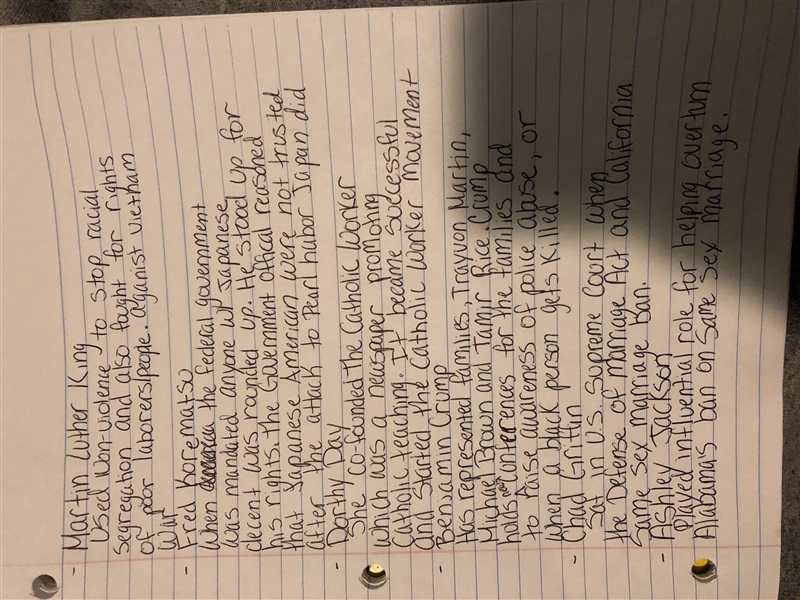 - Martin Luther King
Used non-violence to stop racial
segregation and also fought for rights
of poor laborers/people. Aganist Vietnam
War
- Fred Korematsu
When the Federal government
was mandated anyone w/ Japanese
decent was rounded up. He stood up for
his rights. The Government offical reasoned
that Japanese American were not trusted
after the attack to Pearl Habor Japan did
- Dorthy Day
She co-founded the Catholic Worker
which was a newspaper promoting
Catholic teaching. It became successful
and started the Catholic Worker Movement
- Benjamin Crump
Has represented families, Trayvon Martin,
Michael Brown and Tamir Rice. Crump
holds conferences for the families and
to raise awareness of police abuse, or
when a black person gets killed.
- Chad Griffin
Sat in U.S. Supreme Court when
the Defense of Marriage Act and California
Same Sex marriage ban.
- Ashley Jackson
Played influential role for helping overturn
Alabama's ban on same sex marriage.